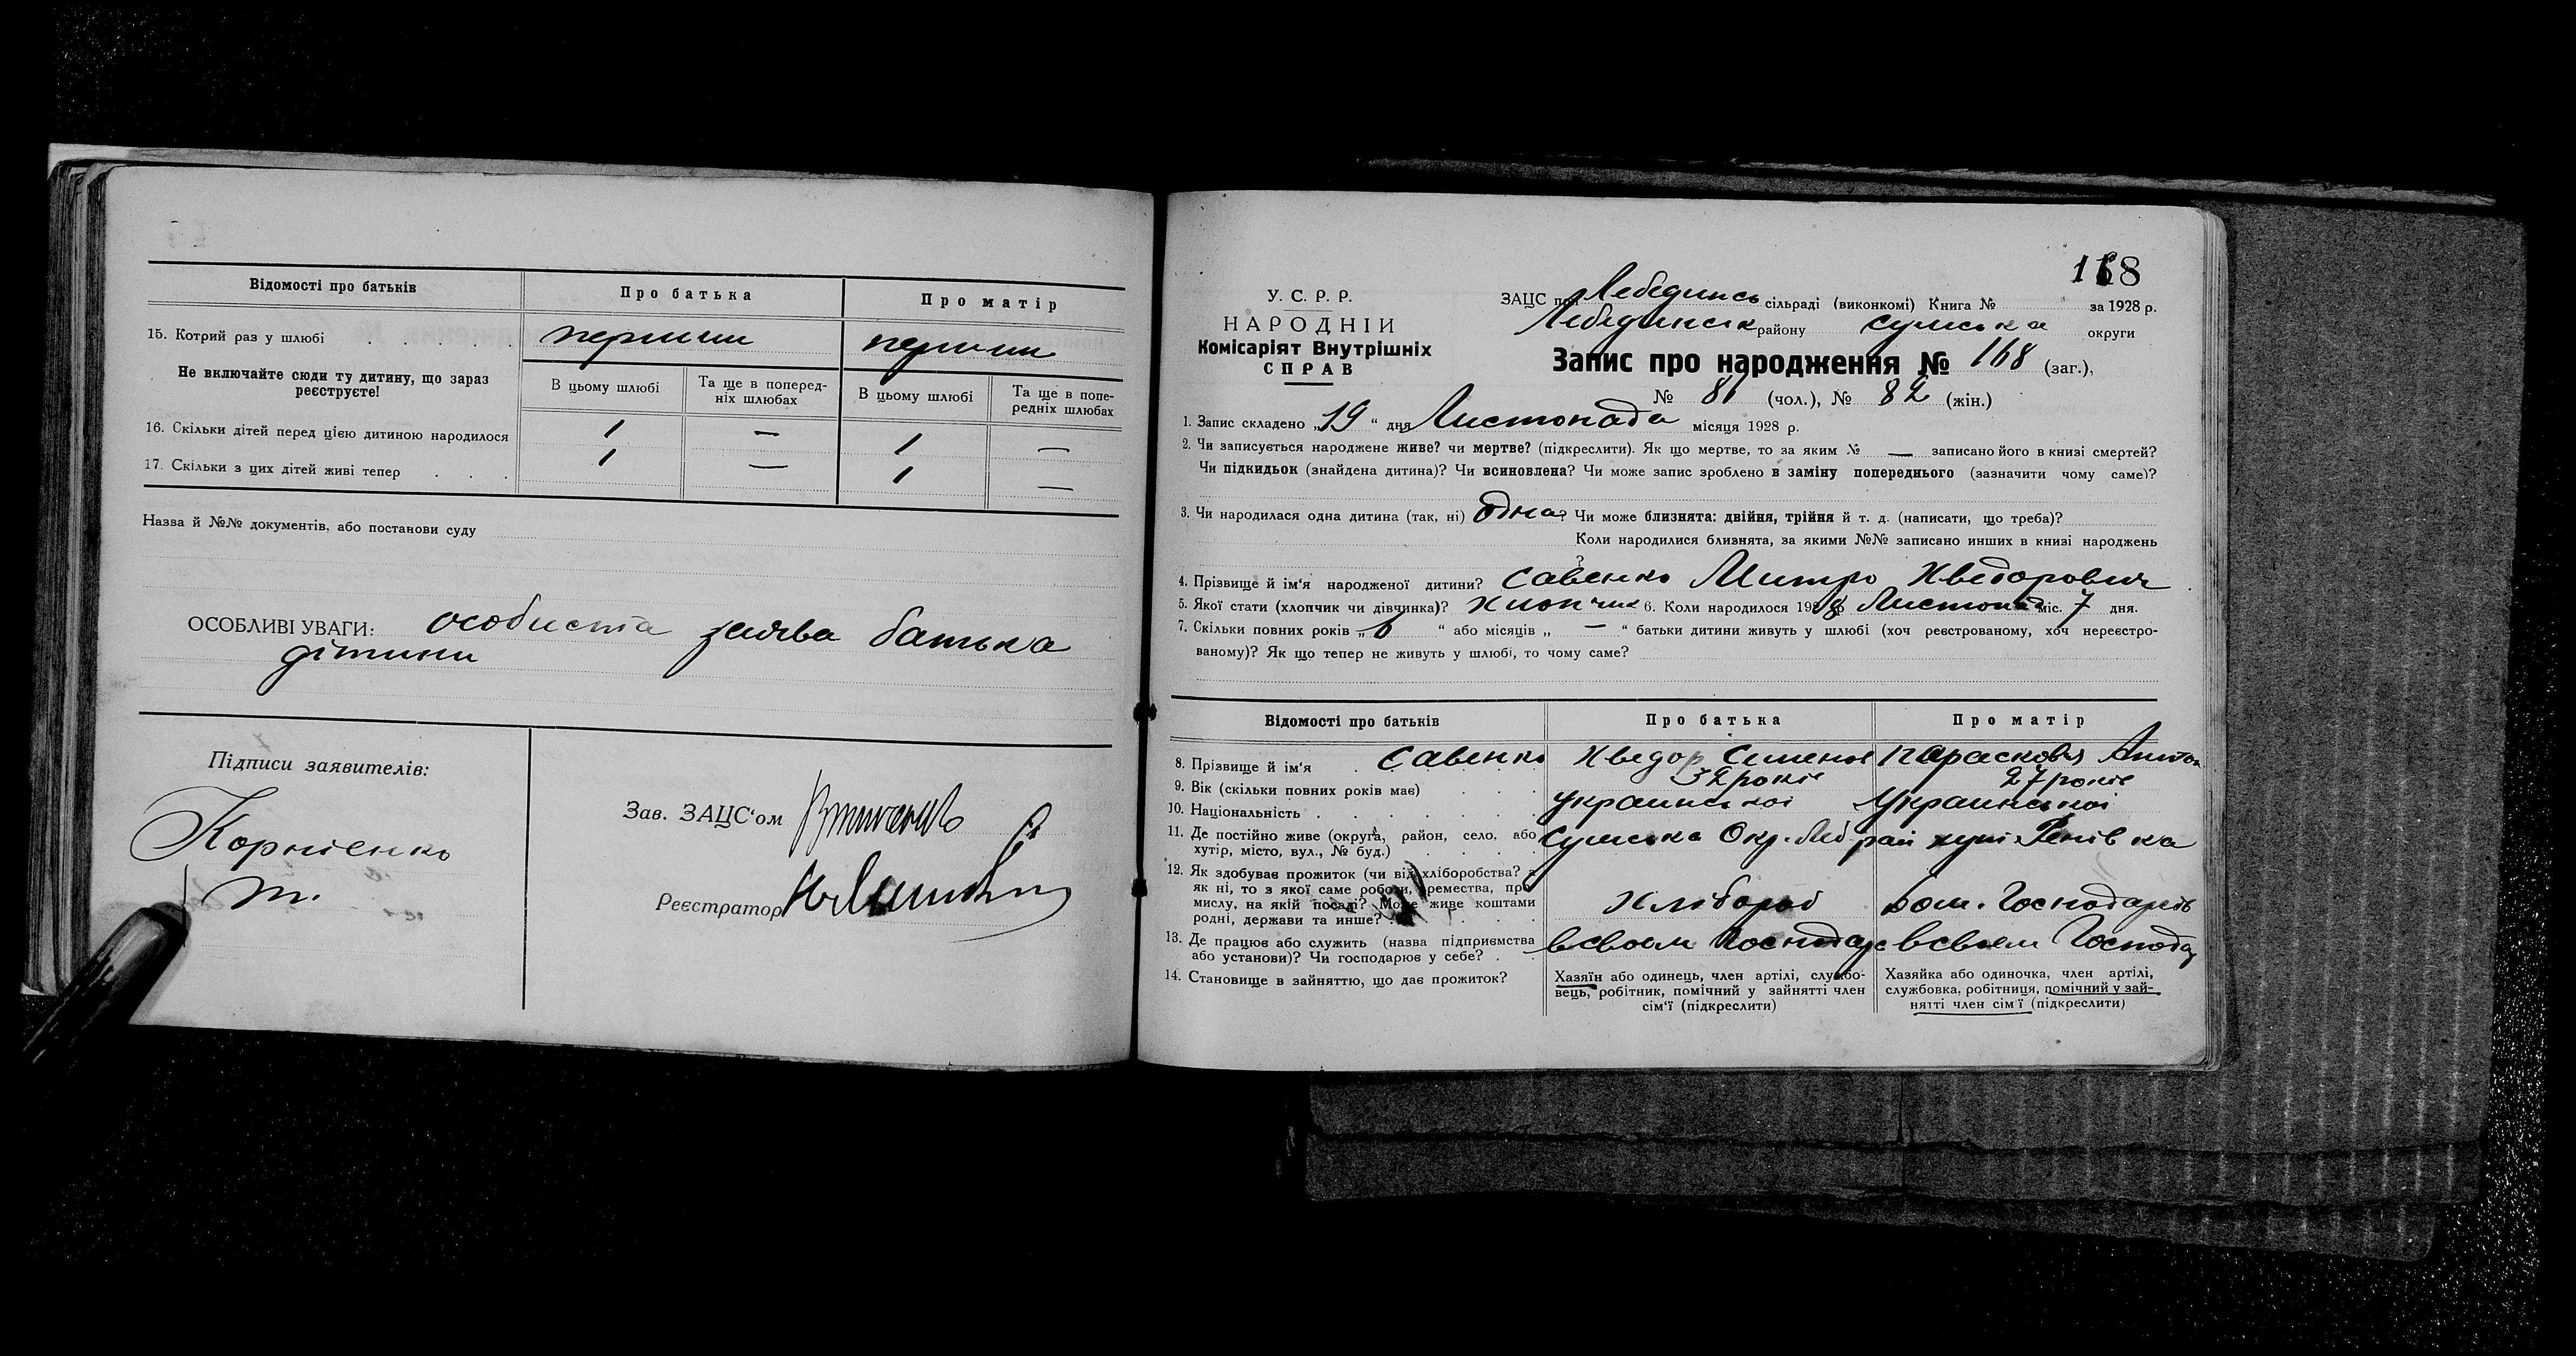 Відомості про батьків
Про батька
Про матір
15. Котрий раз у шлюбі . . . . .
первий
первий
Не включайте сюди ту дитину, що зараз реєструєте!
В цьому шлюбі
Та ще в попередніх шлюбах
В цьому шлюбі
Та ще в попередніх шлюбах
16. Скільки дітей перед цією дитиною народилося
1 — 1 —
17. Скільки з цих дітей живі тепер . . .
1 — 1 —
Назва й №№ документів, або постанови суду
ОСОБЛИВІ УВАГИ: особиста заява батька
дітини
Підписи заявителів:
Корнієнко
т.
Зав. ЗАЦС'ом
Реєстратор
168
У. С. Р. Р.
НАРОДНІЙ
Комісаріят Внутрішніх
СПРАВ
ЗАЦС при Лебединсь сільраді (виконкомі) Книга № за 1928 р.
Лебединськ району Сумська округи
Запис про народження № 168 (заг.),
№ 86 (чол.), № 82 (жін.)
1. Запис складено „19“ дня Листопада місяця 1928 р.
2. Чи записується народжене живе? чи мертве? (підкреслити). Як що мертве, то за яким № — записано його в книзі смертей?
Чи підкидьок (знайдена дитина)? Чи всиновлена? Чи може запис зроблено в заміну попереднього (зазначити чому саме)?
3. Чи народилася одна дитина (так, ні) одна? Чи може близнята: двійня, трійня й т. д. (написати, що треба)?
Коли народилися близнята, за якими №№ записано инших в книзі народжень?
4. Прізвище й ім'я народженої дитини? Савенко Митро Хведорович
5. Якої стати (хлопчик чи дівчинка)? Хлопчик 6. Коли народилося 1928 р. Листопад міс. 7 дня.
7. Скільки повних років „6“ або місяців „—“ батьки дитини живуть у шлюбі (хоч реєстрованому, хоч нереєстро-
ваному)? Як що тепер не живуть у шлюбі, то чому саме?
Відомості про батьків
Про батька
Про матір
8. Прізвище й ім'я . Савенко
Хведор Семенов
Парасковя Антон
9. Вік (скільки повних років має) . . .
32 років
27 років
10. Національність . . . . . . .
Украинської
Украинської
11. Де постійно живе (округа, район, село, або
хутір, місто, вул., № буд.) . . . .
Сумська Окр. Леб рай хут
12. Як здобуває прожиток (чи від хліборобства? а
як ні, то з якої саме роботи, ремества, про-
мислу, на якій посаді? Може живе коштами
родні, держави та инше? . . . . .
Хлібороб
Дом. Господарсь
13. Де працює або служить (назва підприємства
або установи)? Чи господарює у себе? . .
в своем Господар
в своем Господа
14. Становище в зайняттю, що дає прожиток?
Хазяїн або одинець, член артілі, службо-
вець, робітник, помічний у зайнятті член
сім'ї (підкреслити)
Хазяйка або одиночка, член артілі,
службовка, робітниця, помічний у зай-
нятті член сім'ї (підкреслити)